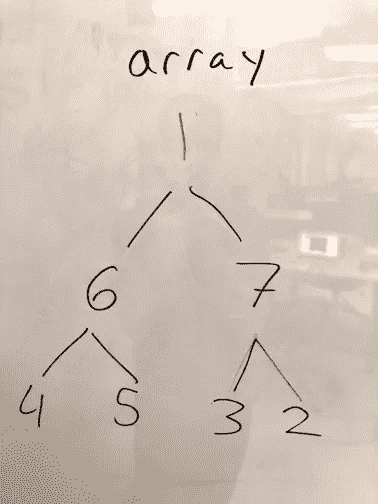 array
1
6 7
4 5 3 2